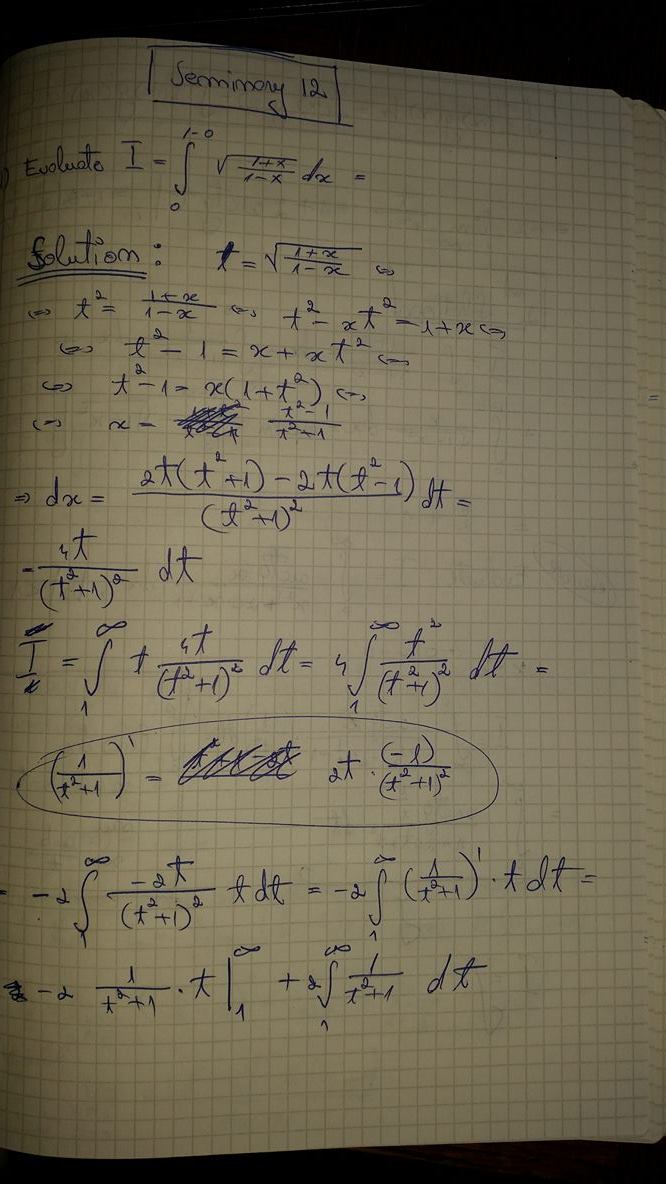 Seminary 12
1) Evaluate I = ∫_0^{1-0} √((1+x)/(1-x)) dx =
Solution: t = √((1+x)/(1-x)) ⇔
⇔ t² = (1+x)/(1-x) ⇔ t² - xt² = 1+x ⇔
⇔ t² - 1 = x + xt² ⇔
⇔ t² - 1 = x(1+t²) ⇔
⇔ x = (t²-1)/(t²+1)
⇒ dx = (2t(t²+1) - 2t(t²-1))/(t²+1)² dt =
= 4t/(t²+1)² dt
I = ∫_1^∞ t 4t/(t²+1)² dt = 4∫_1^∞ t²/(t²+1)² dt =
(1/(t²+1))' = 2t · (-1)/(t²+1)²
= -2∫_1^∞ -2t/(t²+1)² t dt = -2∫_1^∞ (1/(t²+1))' · t dt =
-2 1/(t²+1) · t |_1^∞ + 2∫_1^∞ 1/(t²+1) dt